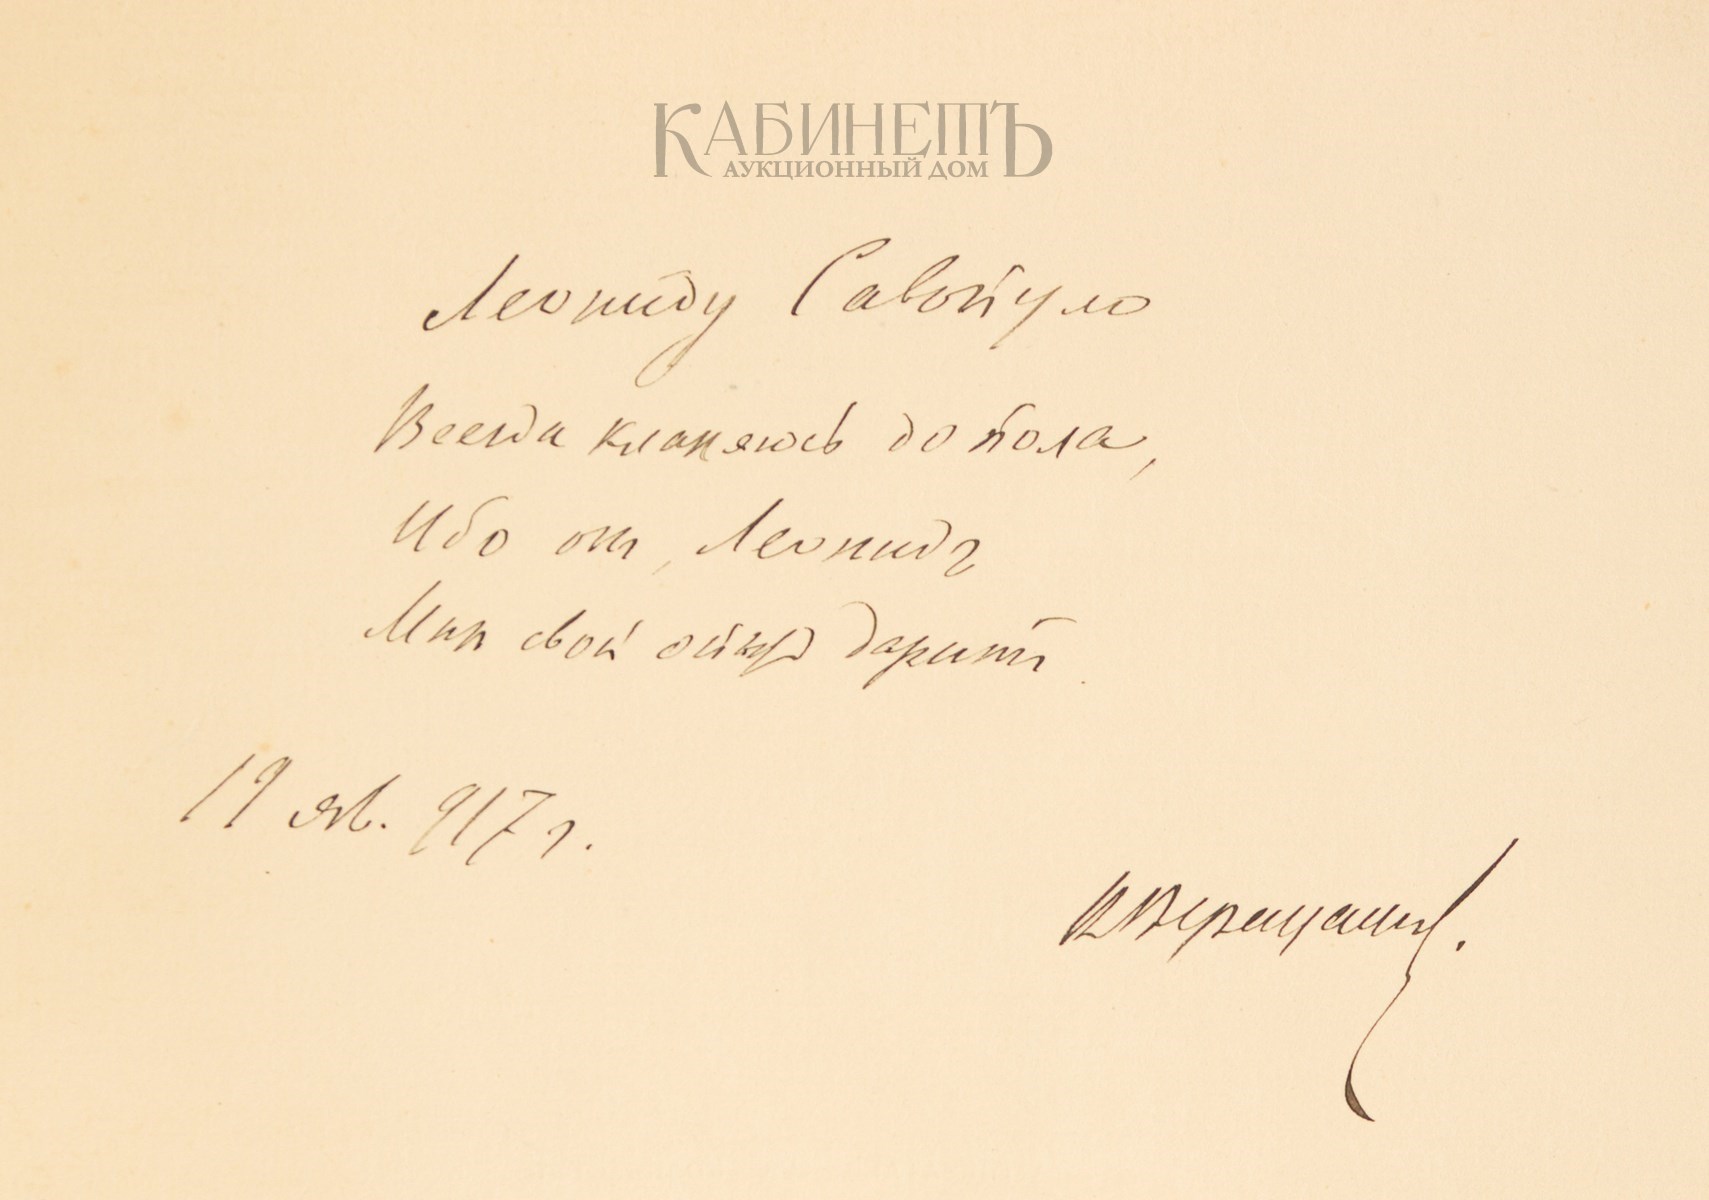 КАБИНЕТЪ
АУКЦИОННЫЙ ДОМ
Леониду
Всегда кланяюсь до пола,
Ибо он, Леонид
Мне свой дарит
19 янв. 917 г.
В Верещагин.